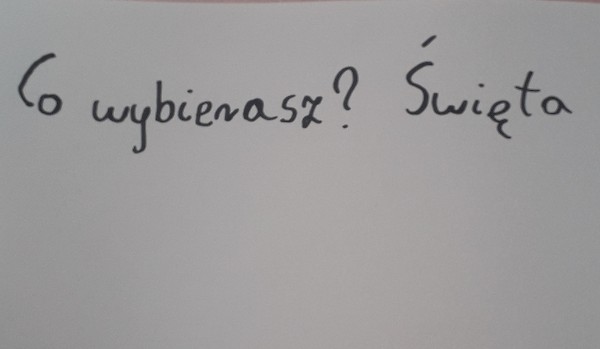 Co wybierasz? Święta